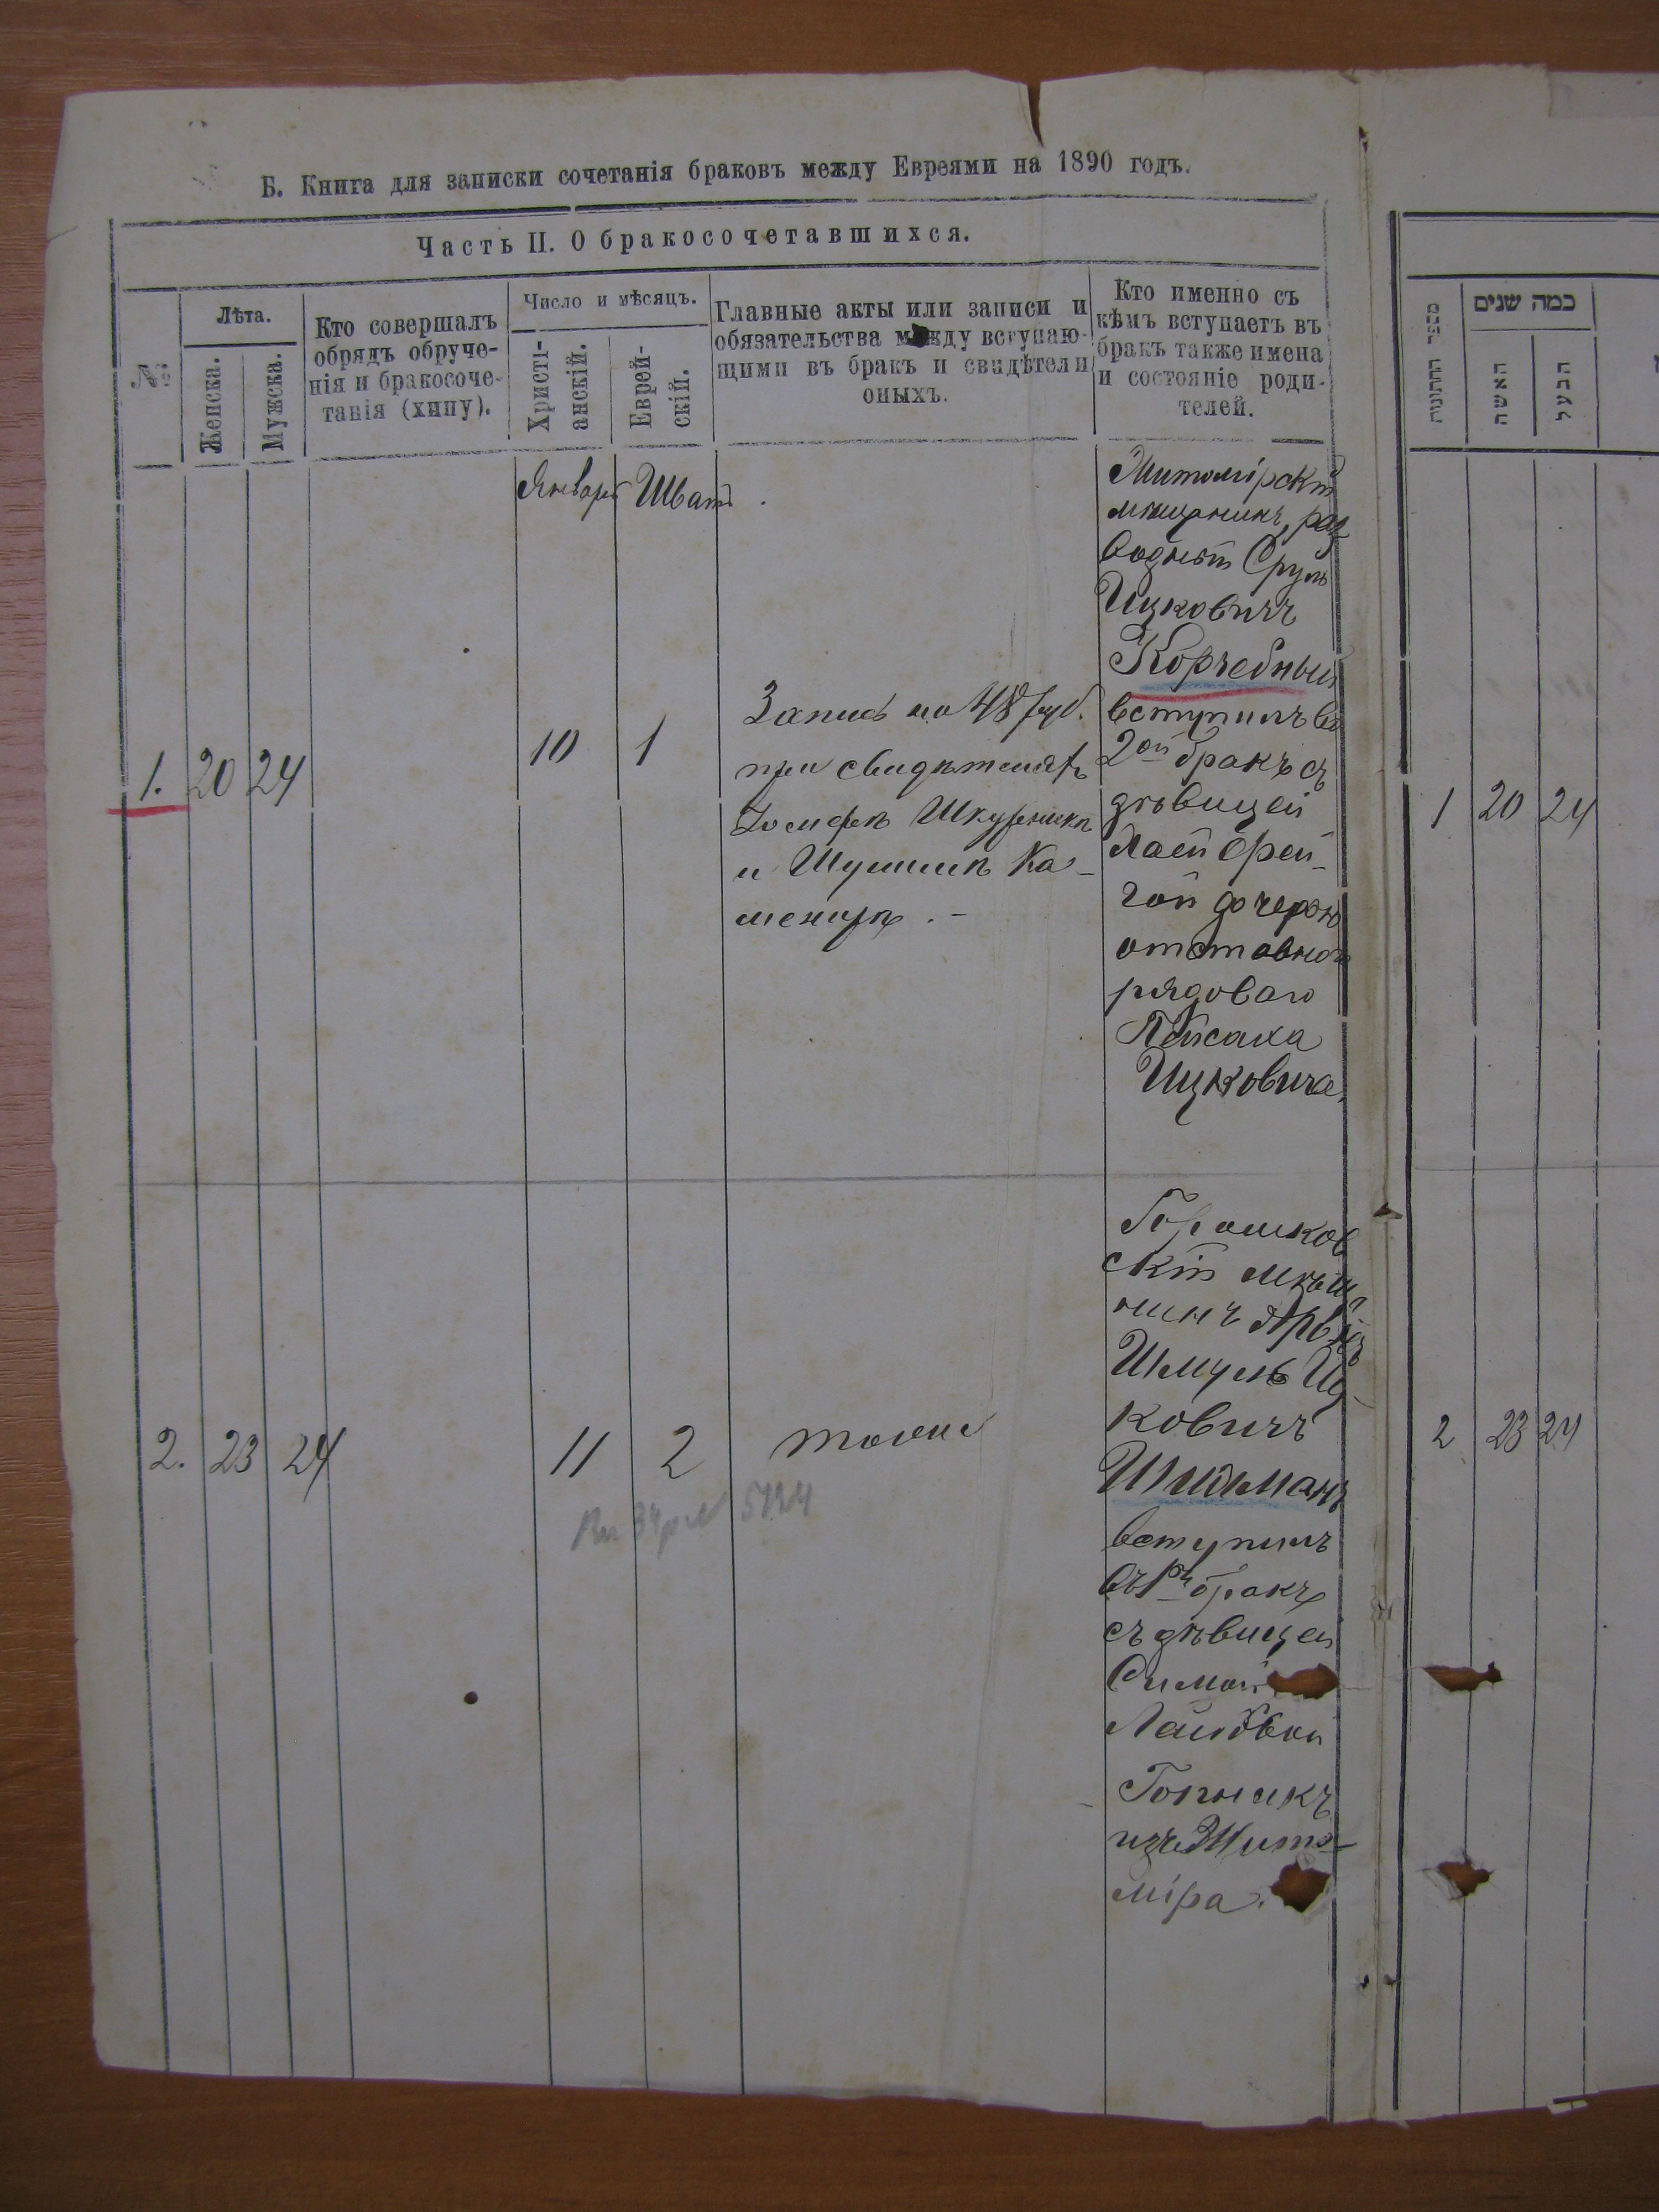 Б. Книга для записки сочетанія браковъ между Евреями на 1890 годъ.
Часть II. О бракосочетавшихся.
№
Лѣта.
Женска.
Мужска.
Кто совершалъ
обрядъ обруче-
нія и бракосоче-
танія (хипу).
Число и мѣсяцъ.
Христі-
анскій.
Еврей-
скій.
Главные акты или записи и
обязательства между вступаю-
щими въ бракъ и свидѣтели
оныхъ.
Кто именно съ
кѣмъ вступаетъ въ
бракъ также имена
и состояніе роди-
телей.
Январь Шватъ
1. 20 24 10 1
Запись на 48 руб.
при свидѣтеляхъ
и Ка-
Житомірскій
мѣщанинъ, раз
Сруль
Ицковичъ
Корчебный
вступилъ во
2ой бракъ съ
дѣвицей
дочерью
отставного
рядоваго
Пейсаха
Ицковича.
2. 23 24 11 2 тоже
Горошков
скій мѣща
нинъ
Шмуль Иц-
ковичъ
вступилъ
въ 1й бракъ
съ дѣвицей
Симой
изъ Жито-
міра.
מספר החתונות
כמה שנים
האשה
הבעל
1 20 24
2 23 24